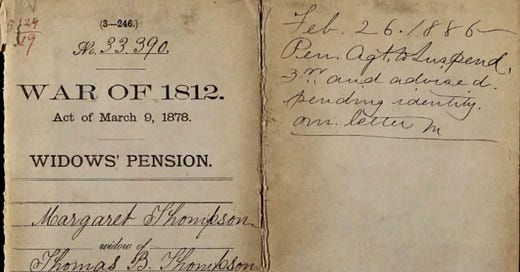 (3—246.)
No. 33.390.
WAR OF 1812.
Act of March 9, 1878.
WIDOWS' PENSION.
Margaret Thompson
widow of
Thomas B. Thompson
Feb. 26. 1886—
Pen. Agt. to Suspend,
and advised.
pending identity.
letter